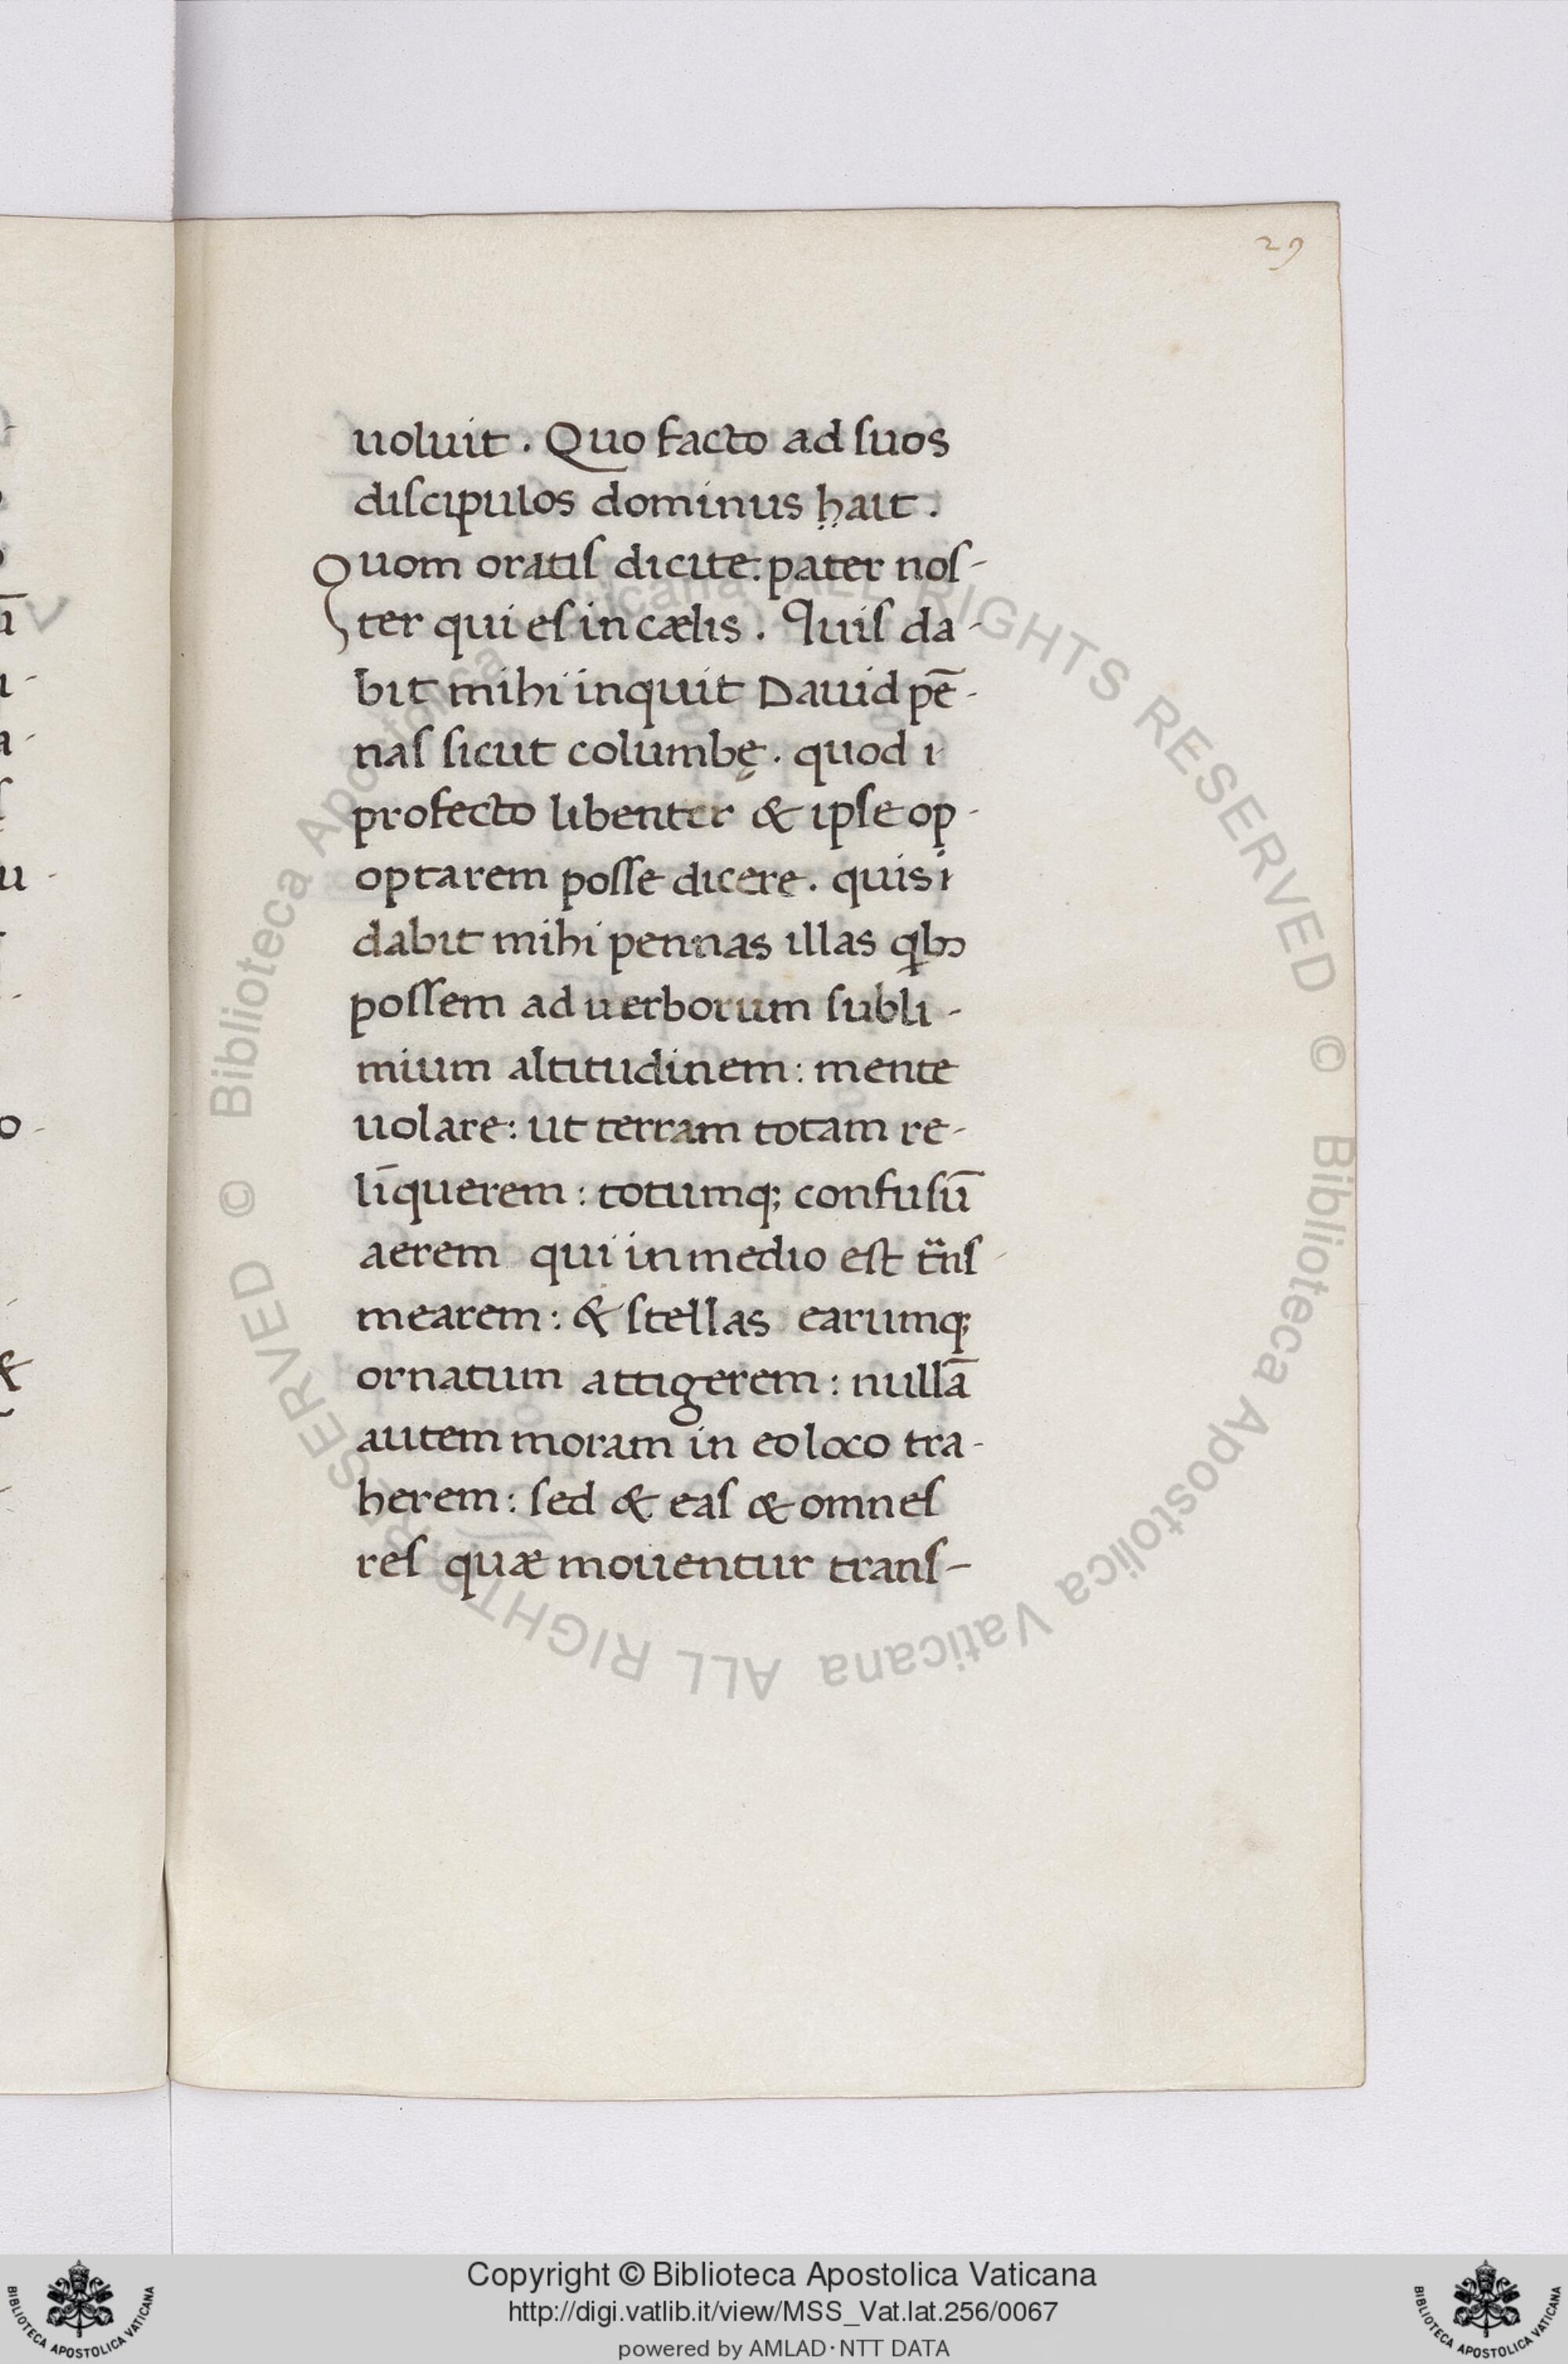 29
uoluit. Quo facto ad suos
discipulos dominus hait.
Quom oratis dicite: pater nos-
ter qui es in cælis. Quis da-
bit mihi inquit Dauid pē-
nas sicut columbę. quod i
profecto libenter & ipse op-
optarem posse dicere. quis i
dabit mihi pennas illas qbꝫ
possem ad uerborum subli-
mium altitudinem: mente
uolare: ut terram totam re-
līquerem: totumq; confusū
aerem qui in medio est t̄ns
mearem: & stellas earumq;
ornatum attigerem: nullā
autem moram in eo loco tra-
herem: sed & eas & omnes
res quæ mouentur trans-
© Biblioteca Apostolica Vaticana ALL RIGHTS RESERVED © Biblioteca Apostolica Vaticana ALL RIGHTS RESERVED
Copyright © Biblioteca Apostolica Vaticana
http://digi.vatlib.it/view/MSS_Vat.lat.256/0067
powered by AMLAD·NTT DATA
BIBLIOTECA APOSTOLICA VATICANA
BIBLIOTECA APOSTOLICA VATICANA